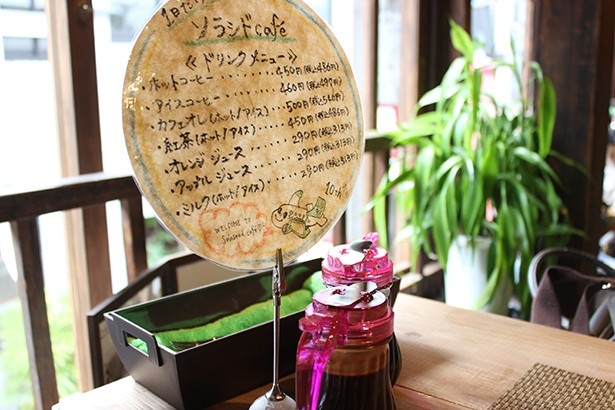 1日だけ
ソラシドcafé
《ドリンクメニュー》
・ホットコーヒー........450円(税込486円)
・アイスコーヒー........460円(税込497円)
・カフェオレ(ホット/アイス)....500円(税込540円)
・紅茶(ホット/アイス).....450円(税込486円)
・オレンジジュース........290円(税込313円)
・アップルジュース........290円(税込313円)
・ミルク(ホット/アイス)......290円(税込313円)
WELCOME TO
Solaseed café!!
10th